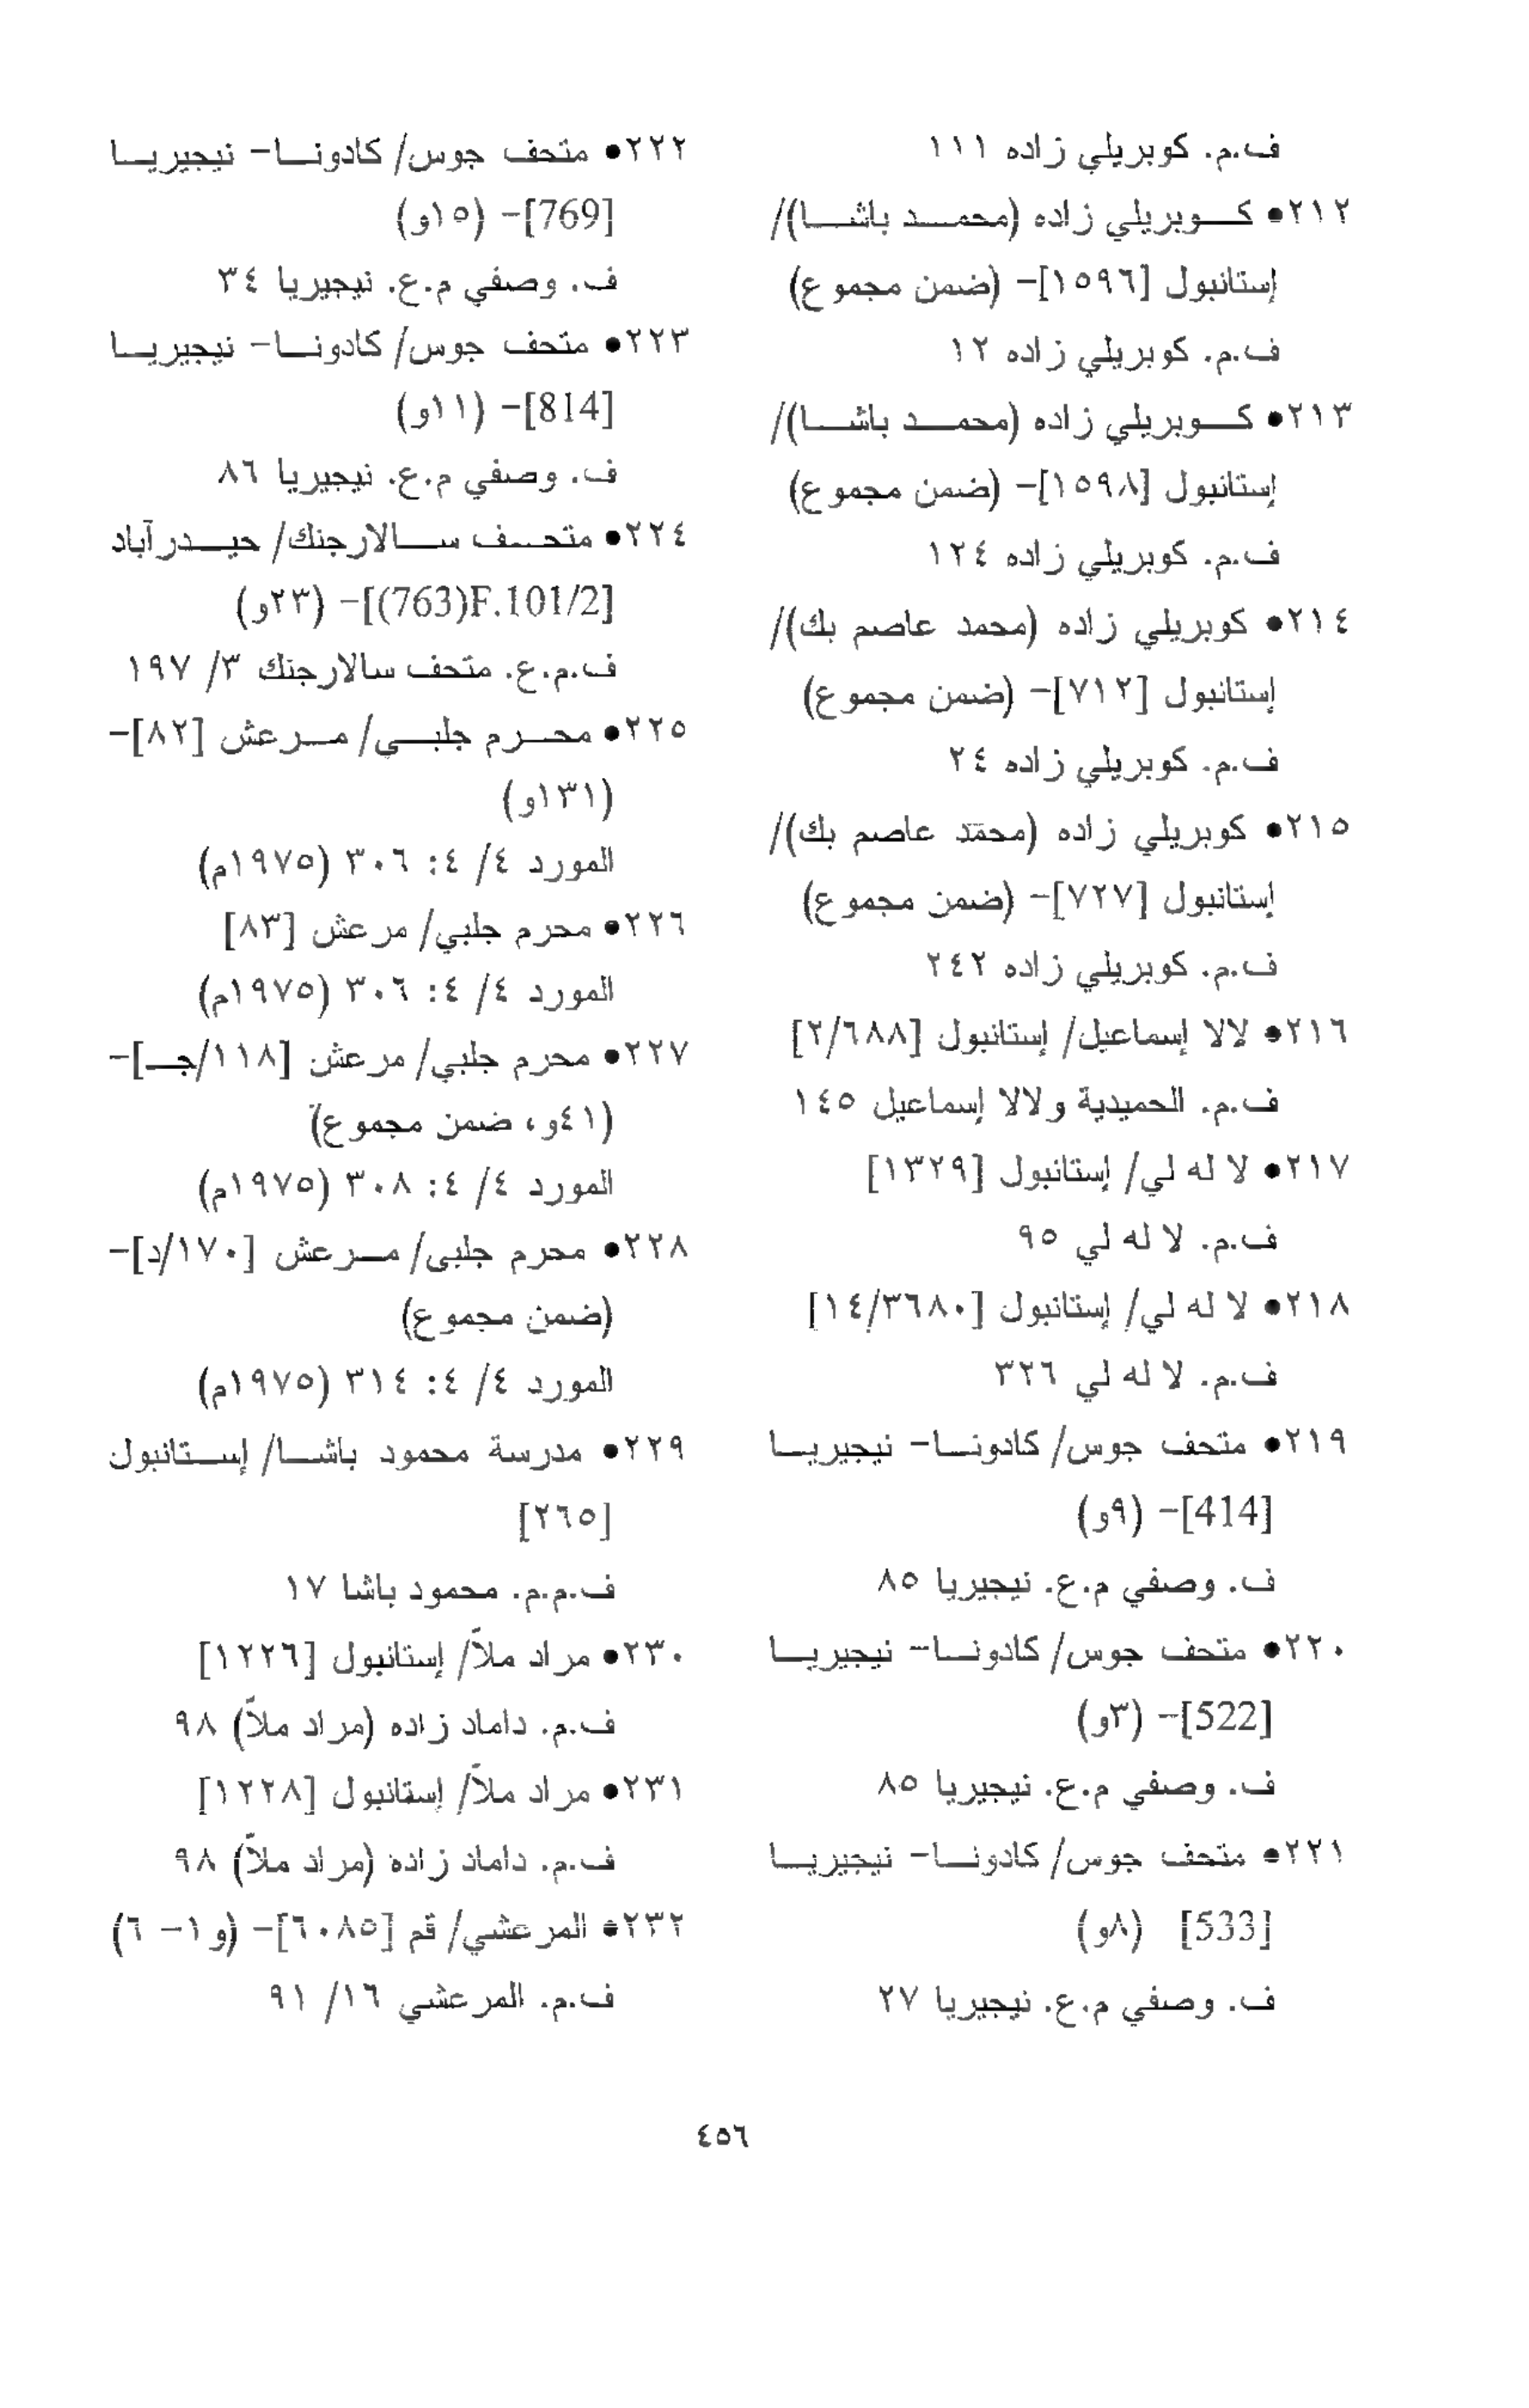 ف.م. كوبريلي زاده ١١١
٢١٢● كوبريلي زاده (محمد باشا)/
إستانبول [١٥٩٦]- (ضمن مجموع)
ف.م. كوبريلي زاده ١٢
٢١٣● كوبريلي زاده (محمد باشا)/
إستانبول [١٥٩٨]- (ضمن مجموع)
ف.م. كوبريلي زاده ١٢٤
٢١٤● كوبريلي زاده (محمد عاصم بك)/
إستانبول [٧١٢]- (ضمن مجموع)
ف.م. كوبريلي زاده ٢٤
٢١٥● كوبريلي زاده (محمد عاصم بك)/
إستانبول [٧٢٧]- (ضمن مجموع)
ف.م. كوبريلي زاده ٢٤٢
٢١٦● لالا إسماعيل/ إستانبول [٢/٦٨٨]
ف.م. الحميدية ولالا إسماعيل ١٤٥
٢١٧● لا له لي/ إستانبول [١٣٢٩]
ف.م. لا له لي ٩٥
٢١٨● لا له لي/ إستانبول [١٤/٣٦٨٠]
ف.م. لا له لي ٣٢٦
٢١٩● متحف جوس/ كادونا- نيجيريا
[414]- (٩و)
ف. وصفي م.ع. نيجيريا ٨٥
٢٢٠● متحف جوس/ كادونا- نيجيريا
[522]- (٣و)
ف. وصفي م.ع. نيجيريا ٨٥
٢٢١● متحف جوس/ كادونا- نيجيريا
[533] (٨و)
ف. وصفي م.ع. نيجيريا ٢٧
٢٢٢● متحف جوس/ كادونا- نيجيريا
[769]- (١٥و)
ف. وصفي م.ع. نيجيريا ٣٤
٢٢٣● متحف جوس/ كادونا- نيجيريا
[814]- (١١و)
ف. وصفي م.ع. نيجيريا ٨٦
٢٢٤● متحف سالارجنك/ حيدرآباد
[F.101/2(763)]- (٢٣و)
ف.م.ع. متحف سالارجنك ٣/ ١٩٧
٢٢٥● محرم جلبي/ مرعش [٨٢]-
(١٣١و)
المورد ٤/ ٤: ٣٠٦ (١٩٧٥م)
٢٢٦● محرم جلبي/ مرعش [٨٣]
المورد ٤/ ٤: ٣٠٦ (١٩٧٥م)
٢٢٧● محرم جلبي/ مرعش [١١٨/جـ]-
(٤١و، ضمن مجموع)
المورد ٤/ ٤: ٣٠٨ (١٩٧٥م)
٢٢٨● محرم جلبى/ مرعش [١٧٠/د]-
(ضمن مجموع)
المورد ٤/ ٤: ٣١٤ (١٩٧٥م)
٢٢٩● مدرسة محمود باشا/ إستانبول
[٢٦٥]
ف.م.م. محمود باشا ١٧
٢٣٠● مراد ملاّ/ إستانبول [١٢٢٦]
ف.م. داماد زاده (مراد ملاّ) ٩٨
٢٣١● مراد ملاّ/ إستانبول [١٢٢٨]
ف.م. داماد زاده (مراد ملاّ) ٩٨
٢٣٢● المرعشي/ قم [٦٠٨٥]- (و١- ٦)
ف.م. المرعشي ١٦/ ٩١
٤٥٦